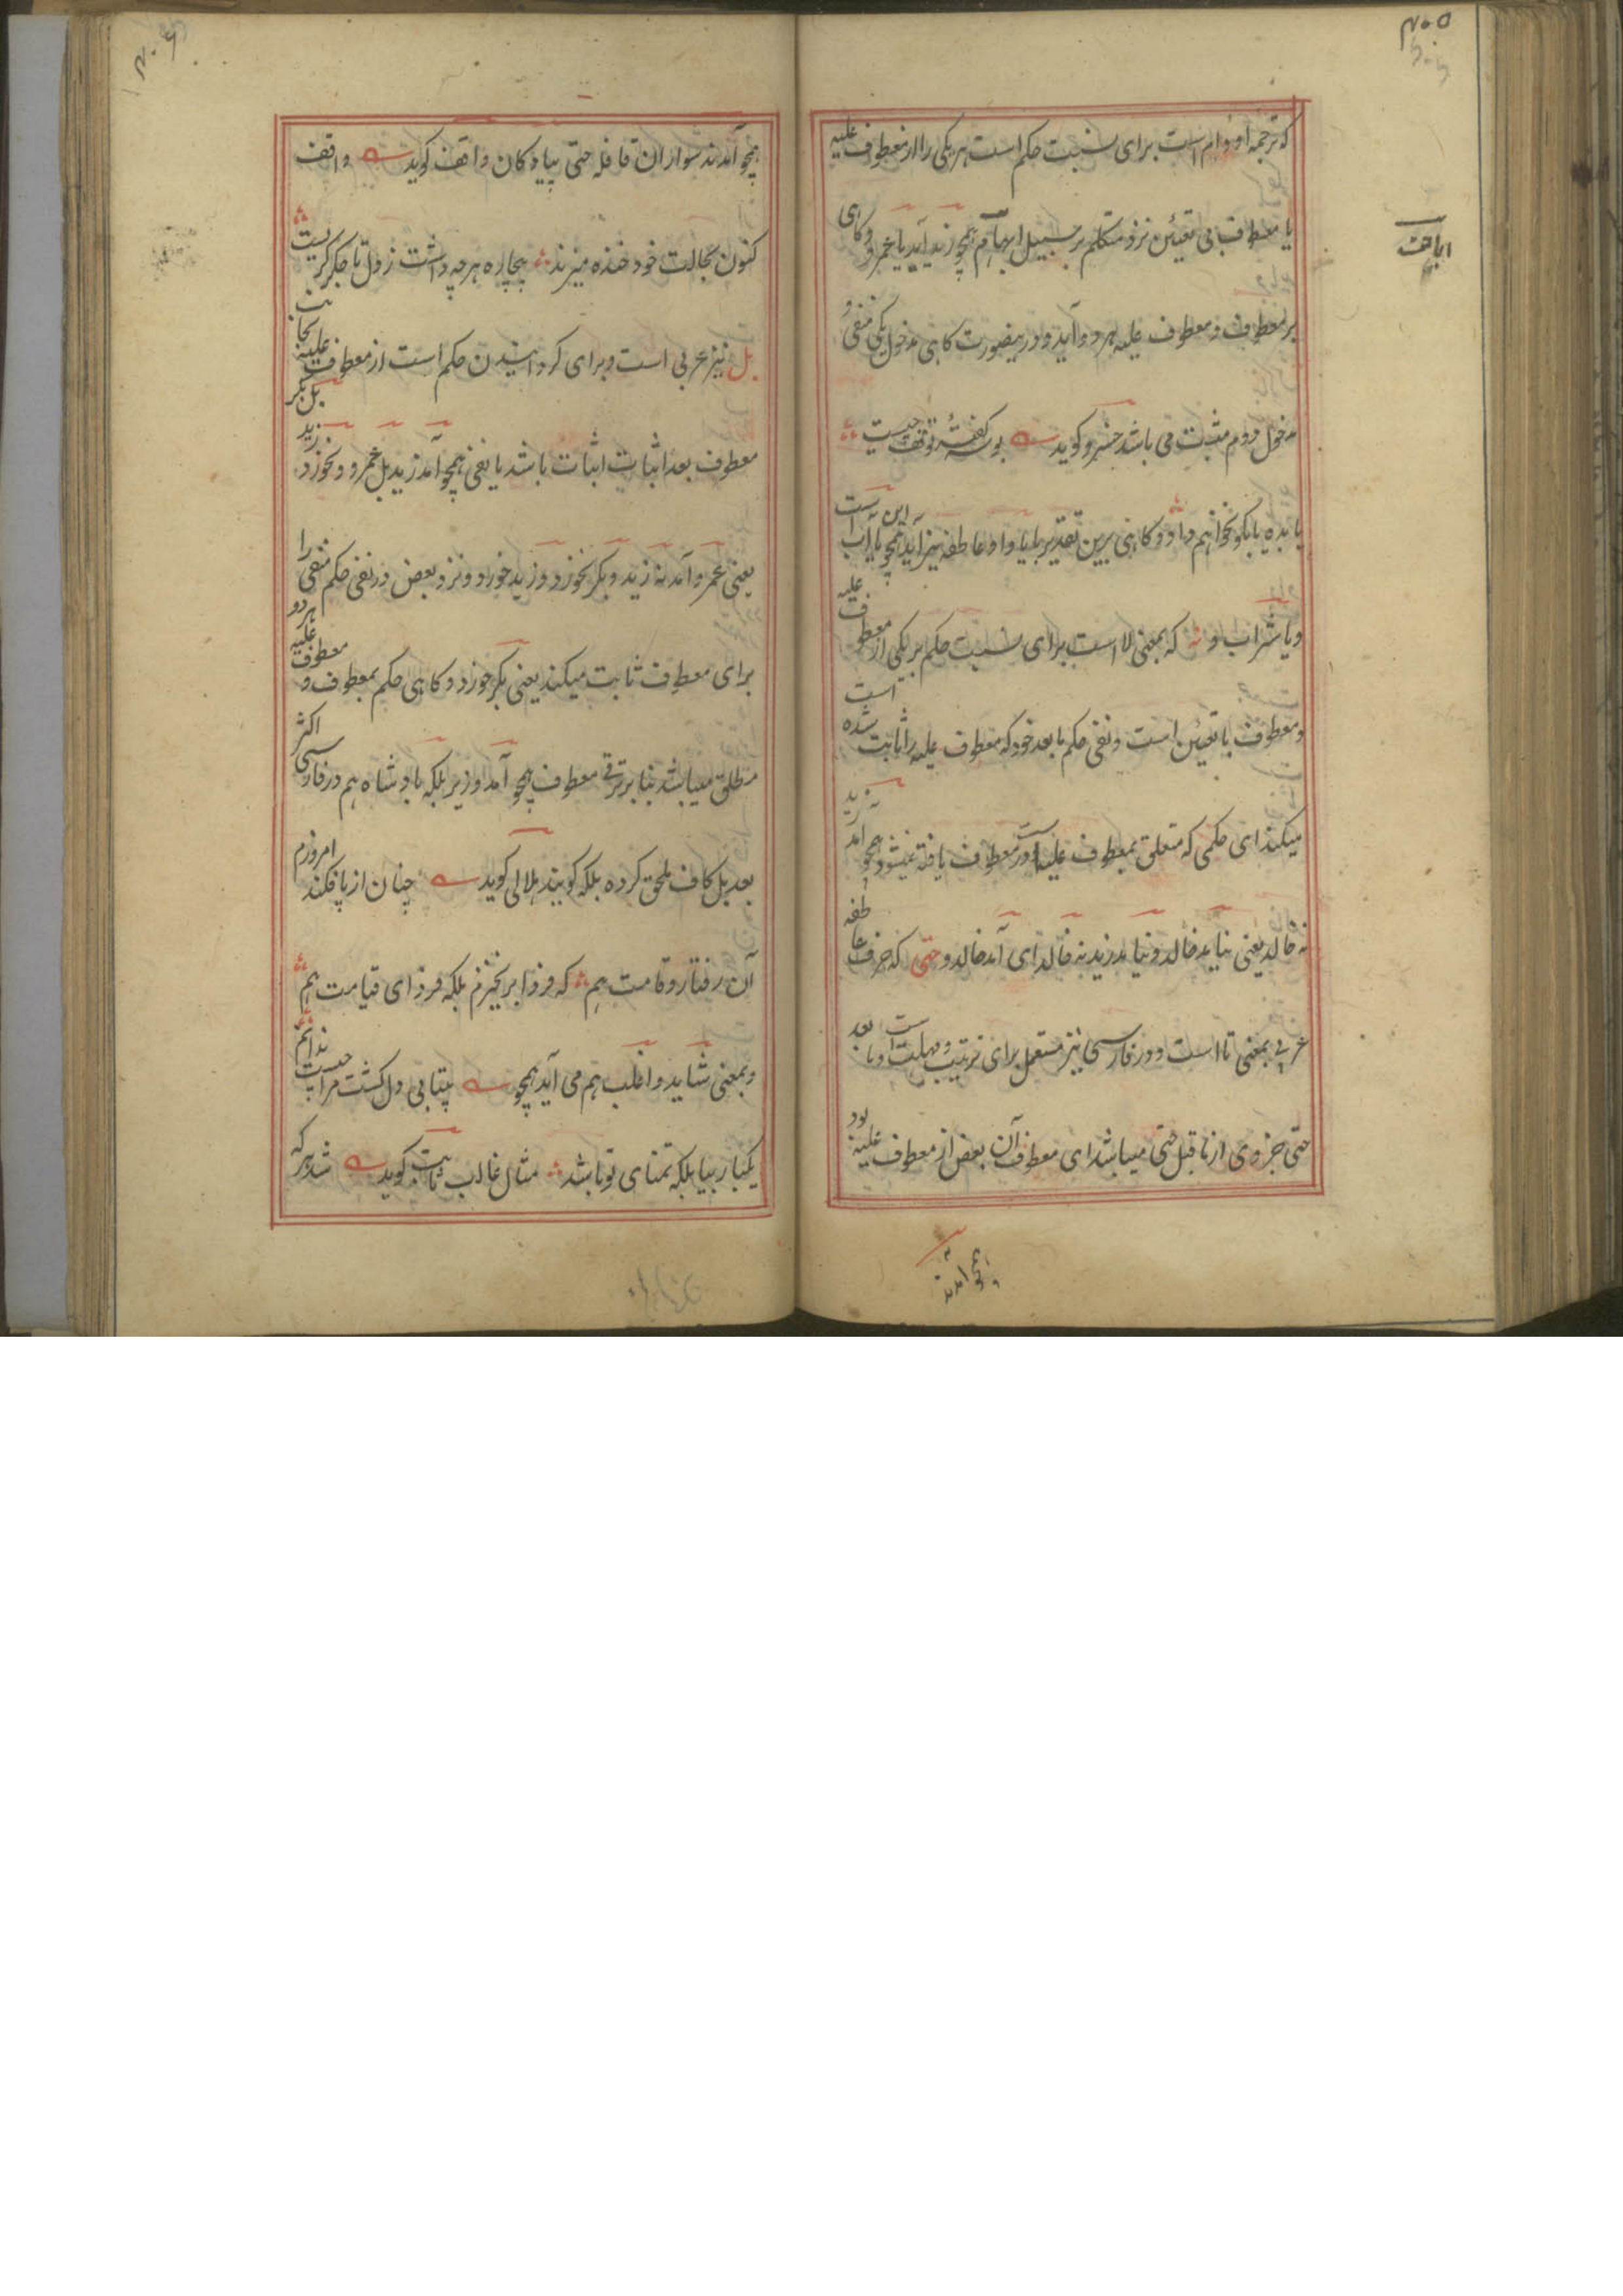 ۲۰۵
که ترجمه او و ام است برای نسبت حکم است هر یکی را از معطوف علیه
یا معطوف بی تعین نزد متکلم بر سبیل ابهام همچو زید آید یا عمرو و کاهی
اباحت
بر معطوف و معطوف علیه هر دو آید و درینصورت کاهی مدخول یکی منفی و
مدخول دوم مثبت می باشد خسرو کوید بوسه کفتهٔ توقف چیست
یا بده یا بکو نخواهم داد و کاهی برین تقدیر با یا واو عاطفه نیز آید همچو یا آب این است
و یا شراب و نه که بمعنی لا است برای نسبت حکم بر یکی از معطوف علیه
و معطوف با تعین است و نفی حکم ما بعد خود که معطوف علیه را ثابت شده است
میکند ای حکمی که متعلق بمعطوف علیه است در معطوف یافته نمیشود همچو آمد زید
نه خالد یعنی نیامد خالد و نیامد زید نه خالد ای آمد خالد و حتی که حرف عاطفه
عربی بمعنی تا است و در فارسی نیز مستعمل برای ترتیب و مهلت است و ما بعد
حتی جزوی از ما قبل حتی میباشد ای معطوف آن بعض از معطوف علیه بود
همچو آمدند
۲۰۶
همچو آمدند سواران قافله حتی پیادکان واقف کوید واقف
کنون بحالت خود خنده میزند بیچاره هر چه داشت ز دل تا جکر کریست
بل نیز عربی است و برای کردانیدن حکم است از معطوف علیه بجانب
معطوف بعد اثبات اثبات باشد یا نفی همچو آمد زید بل عمرو و نخورد زید بل بکر
یعنی عمرو آمد نه زید و بکر نخورد و زید خورد و نزد بعض در نفی حکم منفی را
برای معطوف ثابت میکند یعنی بکر خورد و کاهی حکم بمعطوف و معطوف علیه هر دو
مطلق میباشد بنا بر ترقی معطوف همچو آمد وزیر بلکه پادشاه هم در فارسی اکثر
بعد بل کاف ملحق کرده بلکه کویند هلالی کوید چنان از پا فکند امروزم
آن رفتار و قامت هم که فردا بر نخیزم بلکه فردای قیامت هم
و بمعنی شاید و اغلب هم می آید همچو بیتابی دل کشت مرا چیست ندانم
یکبار بیا بلکه تمنای تو باشد مثال غالب ثابت کوید شد هر که